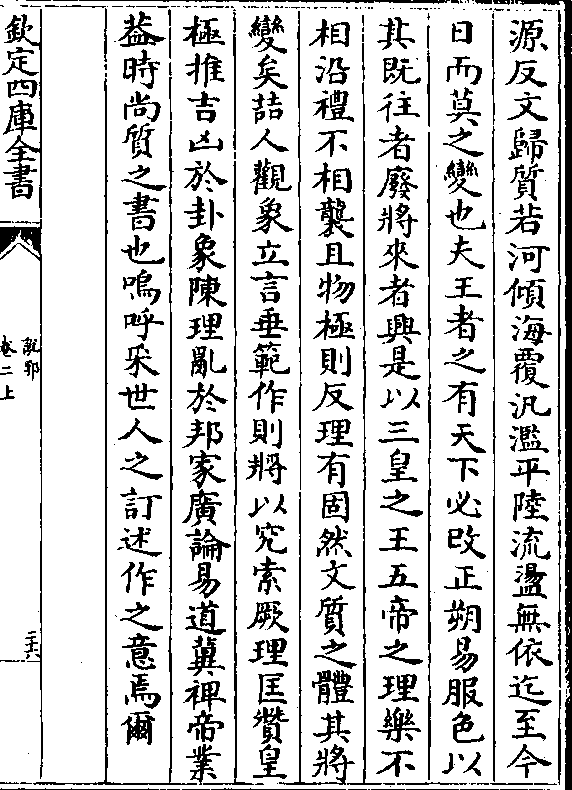 源反文歸質若河傾海覆汎濫平陸流盪無依迄至今
日而莫之變也夫王者之有天下必改正朔易服色以
其既往者廢將來者興是以三皇之王五帝之理樂不
相沿禮不相襲且物極則反理有固然文質之體其將
變矣喆人觀象立言垂範作則將以究索厥理匡贊皇
極推吉凶於卦象陳理亂於邦家廣論易道冀裨帝業
葢時尚質之書也嗚呼采世人之訂述作之意焉爾
欽定四庫全書
說郛
卷二上
二六